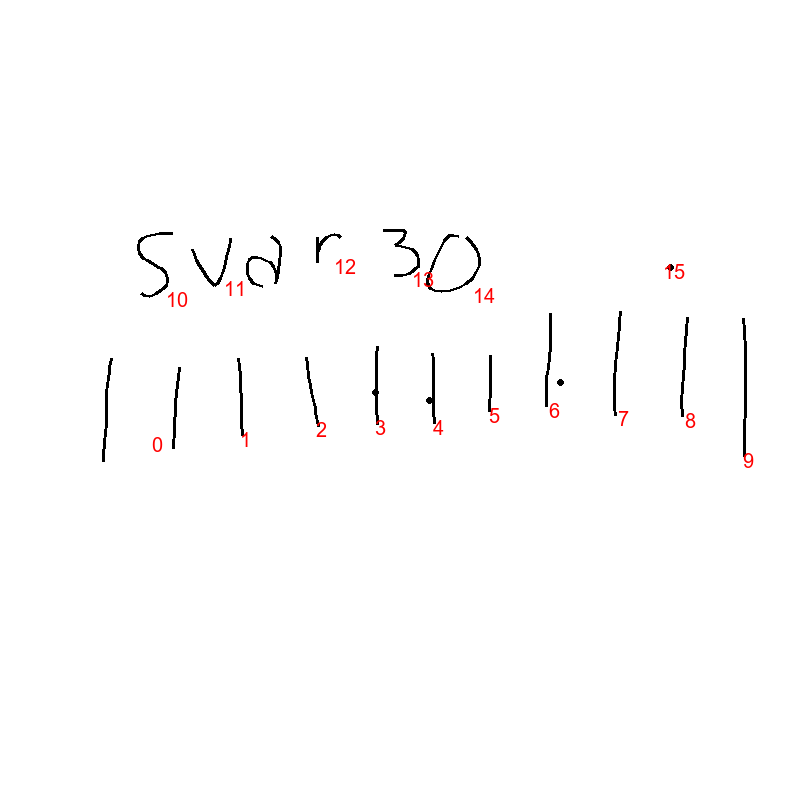 Svar 30
10 11 12 13 14 15
0 1 2 3 4 5 6 7 8 9